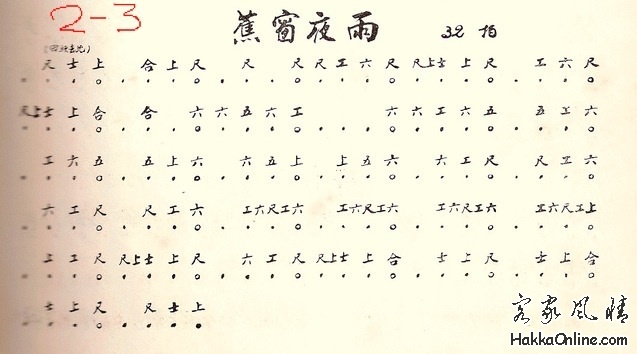 2-3
蕉窗夜雨 32 拍
尺士上 合上尺 尺 尺 尺工六尺 尺上士上尺 工六尺
尺上士上合 合六 六五六工 六六工六五 五工六
工六五 五上六 六五上 上五六 六工尺 尺工六
六工尺 尺工六 工六尺工六 工六尺工六 工六尺工六 工六尺工上
上工尺 尺上士上尺 六工尺 尺上士上合 士上尺 士上合
士上尺 尺士上
客家风情
HakkaOnline.com